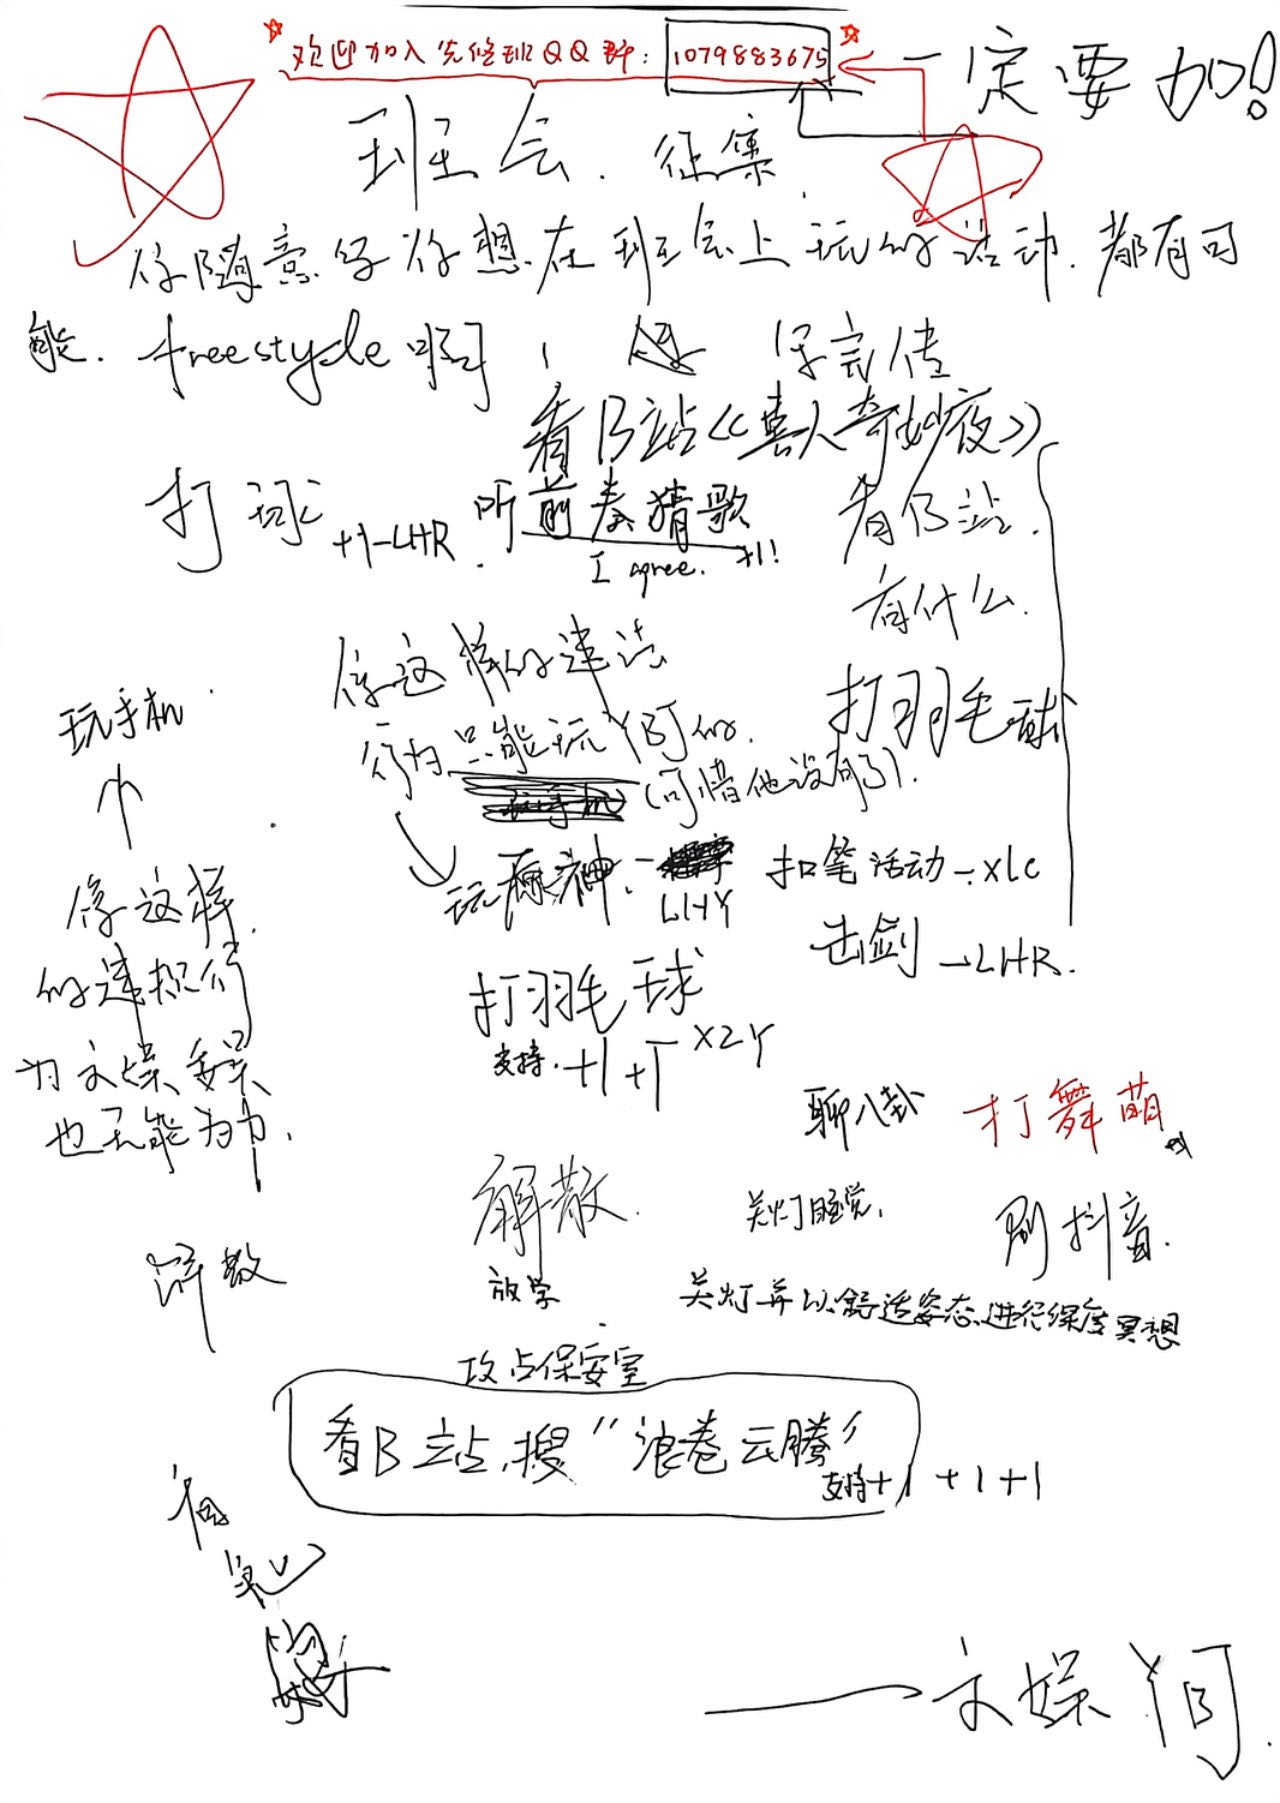 欢迎加入先修班QQ群：1079883675
一定要加！
班会.征集.
你随意写你想在班会上玩的活动.都有可
能.freestyle啊
保家传
看B站《喜人奇妙夜》
打球+1-LHR.
听前奏猜歌
I agree. +1!
看B站.
有什么.
像这样的违法
行为只能玩丫的.
(可惜他没有了).
打羽毛球
玩手机
↑
像这样
的违规行
为文娱委员
也无能为力.
玩原神.-LHY
扣笔活动-xlc
击剑-LHR.
打羽毛球
支持.+1+1 XZY
聊八卦
打舞萌
解散.
关灯睡觉.
刷抖音.
解散
放学
关灯并以舒适姿态进行深度冥想
攻占保安室
看B站,搜"浪卷云腾"
支持+1+1+1
——文娱